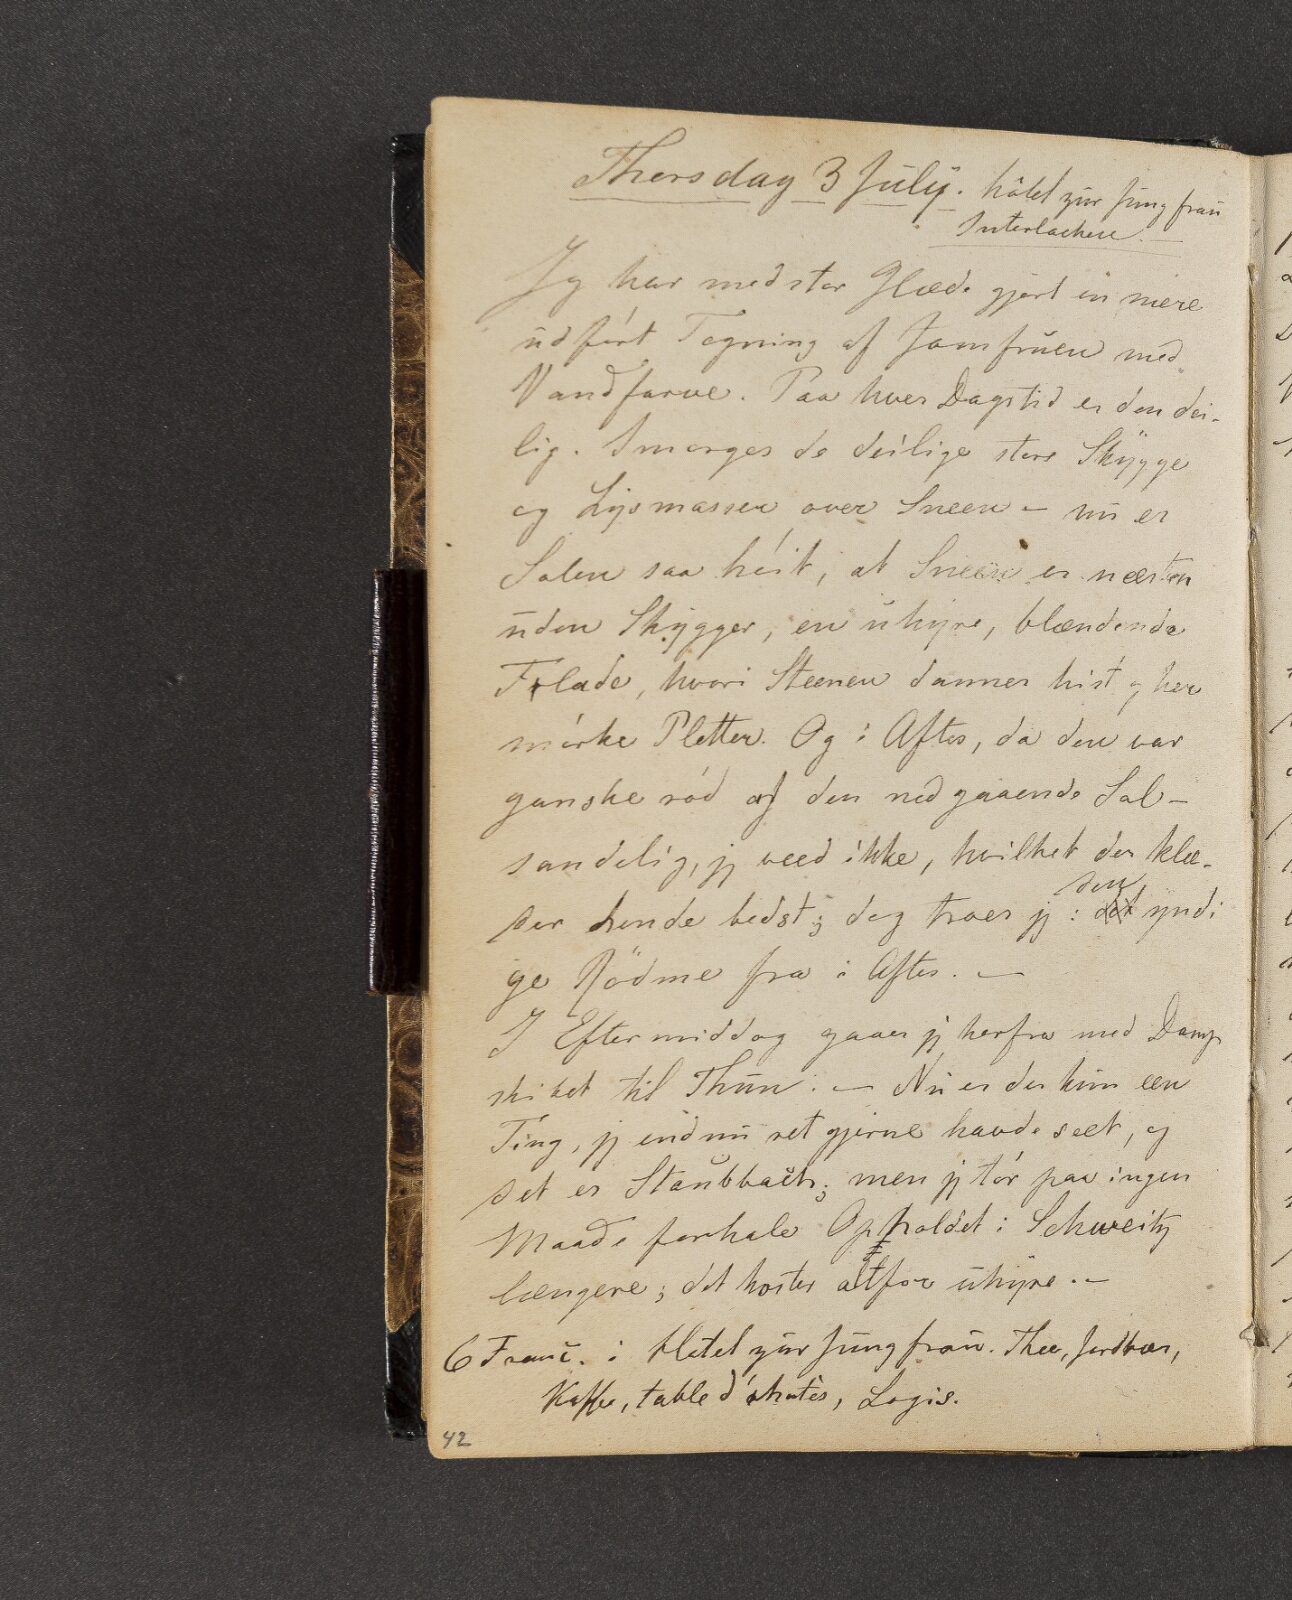 Thorsdag 3 Júlÿ. hôtel zúr Júngfraú
Interlachen. —
Jeg har med stor Glæde gjort en mere
údfört Tegning af Jomfrúen med
Vandfarve. Paa hver Dagstid er den dei-
lig. Imorges de deilige store Skÿgge
og Lÿsmasser over Sneen — nú er
Solen saa höit, at Sneen er næsten
úden Skÿgger, en úhÿre, blændende
Flade, hvori Stenen danner hist og her
mörke Pletter. Og i Aftes, da den var
ganske röd af den nedgaaende Sol —
sandelig, jeg veed ikke, hvilket der klæ-
der hende bedst; dog troer jeg: det den ÿndi
ge Rödme fra i Aftes. —
I Eftermiddag gaaer jeg herfra med Damp
skibet til Thún. — Nú er der kún een
Ting, jeg endnú ret gjerne havde seet, og
det er Staúbbach; men jeg tör paa ingen
Maade forhale Opholdet i Schweitz
længere; det koster altfor úhÿre. —
6 Franc. i Hotel zúr Júngfraú. Thee, Jordbær,
Kaffee, table d'hotes, Logis.
42